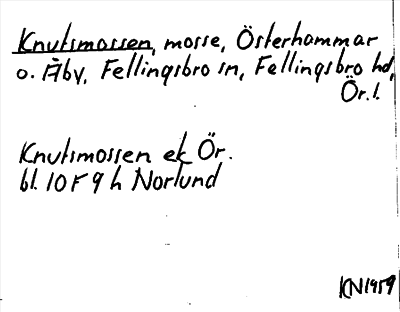 Knutsmossen, mosse, Österhammar
o. Åby, Fellingsbro sn, Fellingsbro hd,
Ör. l.
Knutsmossen ek Ör.
bl. 10 F 9 h Norlund
KN 1959